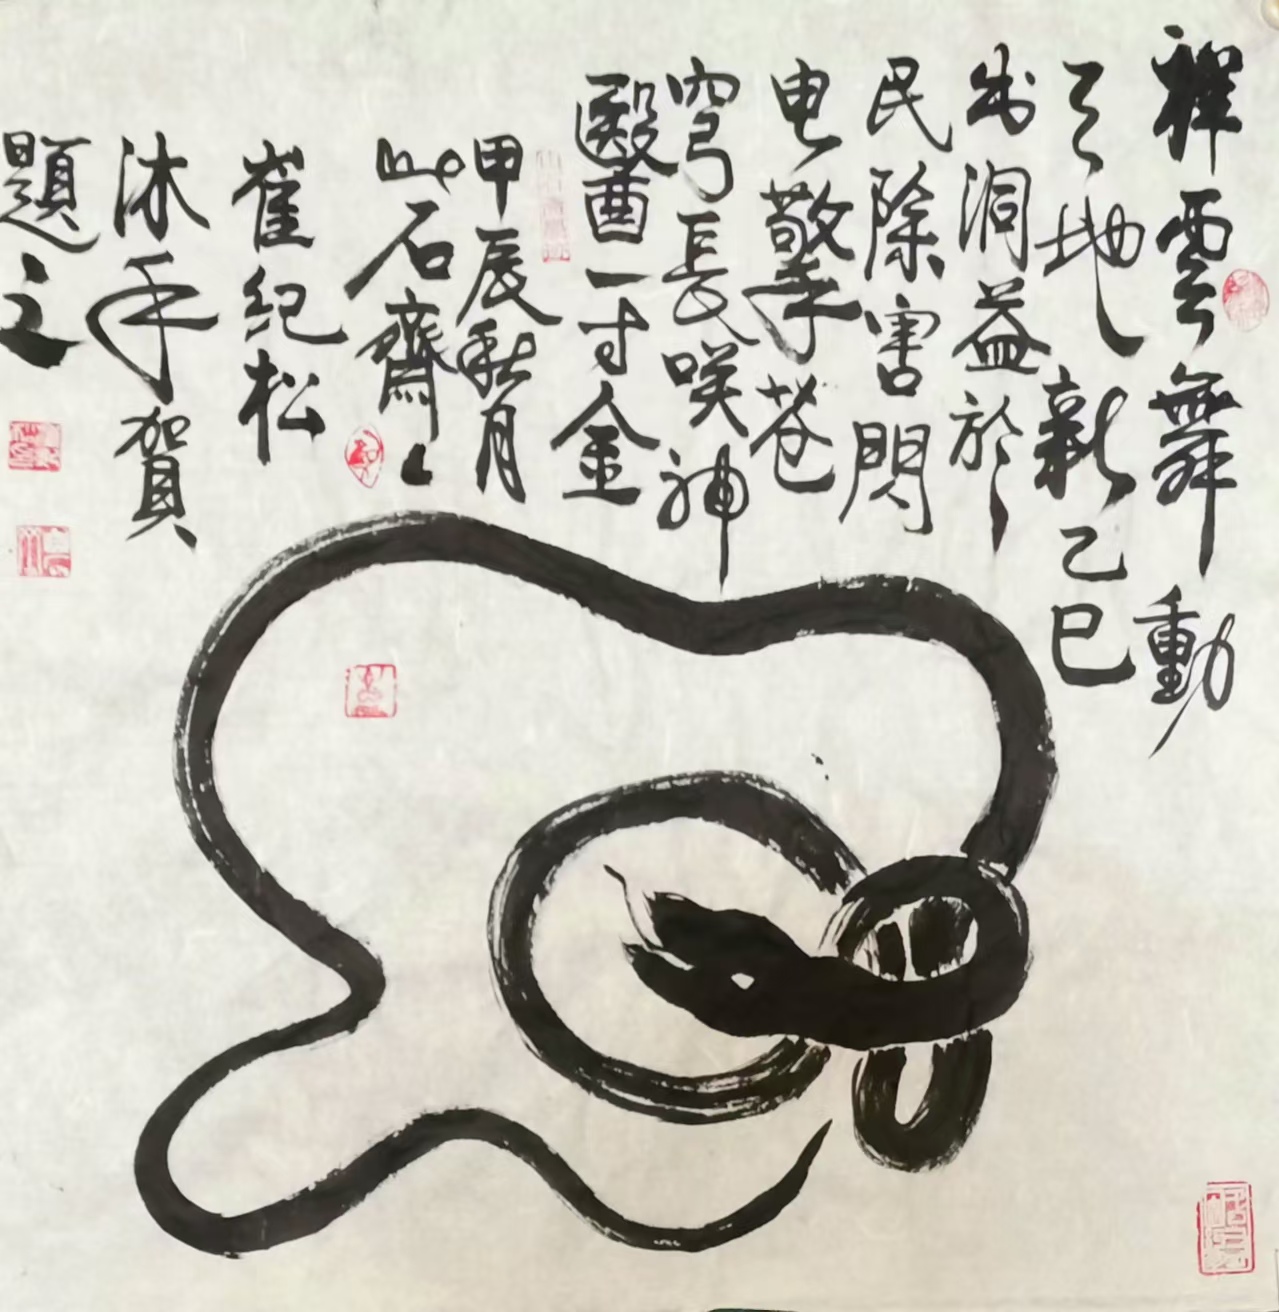 祥雲舞動
天地新乙巳
出洞益於
民除害閃
电擎苍
穹長咲神
醫一寸金
甲辰秋月
山石齋
崔紀松
沐手賀
題之